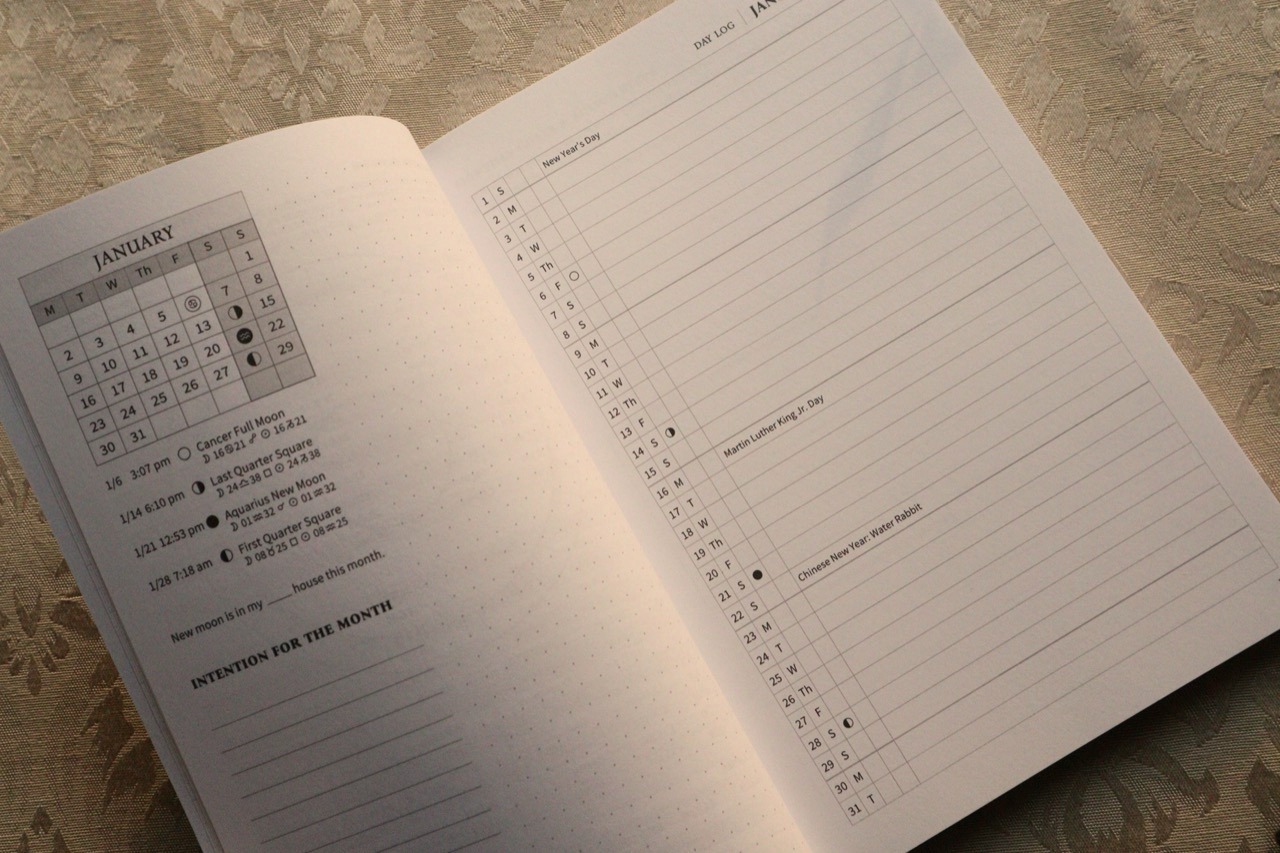 JANUARY
M T W Th F S S
1
2 3 4 5 ♋ 7 8
9 10 11 12 13 ◑ 15
16 17 18 19 20 ♒ 22
23 24 25 26 27 ◐ 29
30 31
1/6 3:07 pm ○ Cancer Full Moon
☽ 16♋21 ☍ ☉ 16♑21
1/14 6:10 pm ◑ Last Quarter Square
☽ 24♎38 □ ☉ 24♑38
1/21 12:53 pm ● Aquarius New Moon
☽ 01♒32 ☌ ☉ 01♒32
1/28 7:18 am ◐ First Quarter Square
☽ 08♉25 □ ☉ 08♒25
New moon is in my ____ house this month.
INTENTION FOR THE MONTH
DAY LOG | JAN
1 S New Year's Day
2 M
3 T
4 W
5 Th
6 F ○
7 S
8 S
9 M
10 T
11 W
12 Th
13 F
14 S ◑
15 S
16 M Martin Luther King Jr. Day
17 T
18 W
19 Th
20 F
21 S ●
22 S Chinese New Year: Water Rabbit
23 M
24 T
25 W
26 Th
27 F
28 S ◐
29 S
30 M
31 T